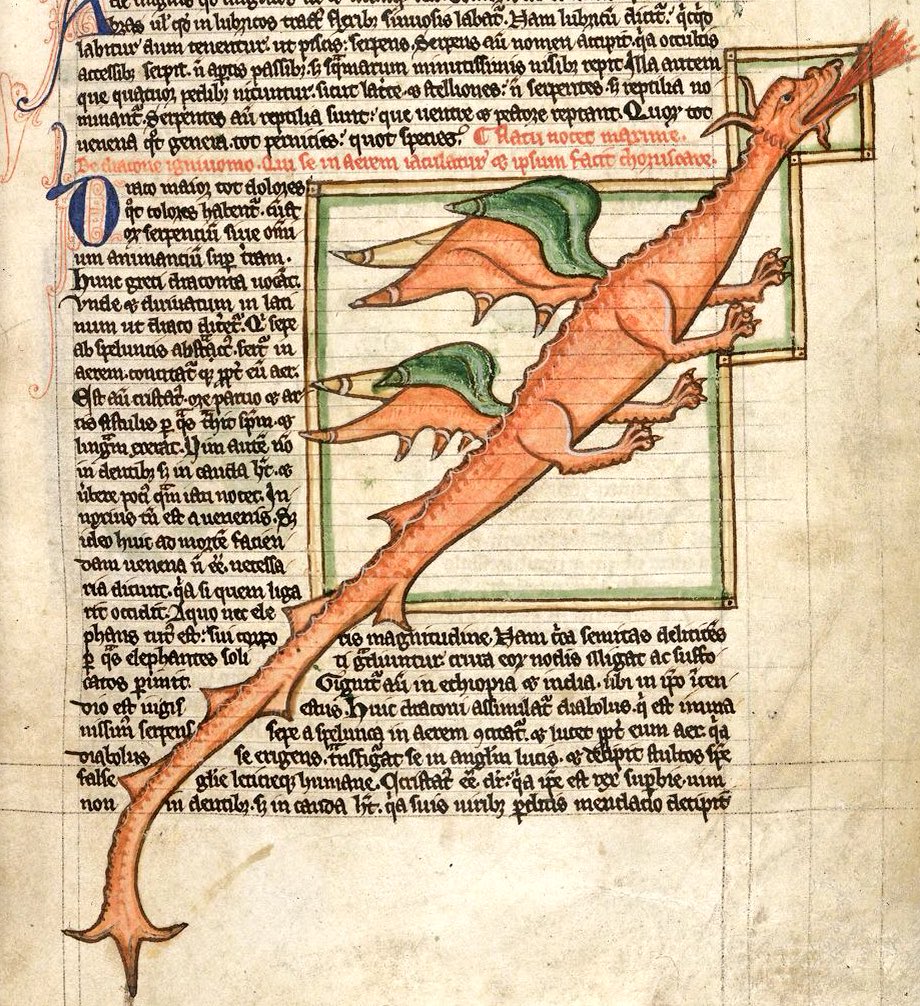 labitur dum tenentur. ut piscis: serpens. Serpens aū nomen accipit. q̇a occultis
accessibꝫ serpit. ñ aptis passibꝫ. ſꝫ sqͣmarum minutissimis nisibꝫ repit. Illa autem
que quatuor pedibꝫ nituntur. sicut lac̄te ⁊ stelliones: ñ serpentes. ſꝫ reptilia no
minant᷑. Serpentes aū reptilia sunt: que ventre ⁊ pectore reptant. Quor tot
uenena qͦt genera. tot pernicies: quot species. Tactu nocet maxime.
De dracone igniuomo. Qui se in aerem iaculatur ⁊ ipsum facit choruscare.
Draco maior tot dolores
qͦt colores habent᷑. cūct
or serpentiū siue om̄i
um animantiū suꝑ t̄ram.
Hunc greci draconta uocāt.
vnde ⁊ diriuatum in lati
num ut draco dicet᷑. Q̇ sepe
ab speluncis abstͣct᷑. fert᷑ in
aerem. concitat᷑ qꝫ ꝓpt̄ eū aer.
Est aū cristat᷑. ore paruo ⁊ ar
tis fistulis ꝑ qͣs tͣhit sp̄m. ⁊
lingͣm exerat. Uim autē. nō
in dentibꝫ ſꝫ in cauda h̄t. ⁊
ūbere poci qͣm ictu nocet. In
noxius tn̄ est a uenenis. Sꝫ
ideo huic ad mortē facien
dam uenena ñ ēē. necessa
ria dicunt. q̇a si quem liga
rit occidit. A quo nec ele
phans tut᷑ est: sui corpo ris magnitudine. Nam c̄ca semitas delitēs
ꝑ qͣs elephantes soli ti gͣdiuntur. crura eor nodis illigat ac suffo
catos perimit. Gignit᷑ aū in ethiopia ⁊ india. ubi in ip̄o īcen
dio est iugis estus. Huic draconi assimilat᷑ diabolus. q̇ est inma
nissim᷑ serpens sepe a spelunca in aerem ꝯcitat᷑. ⁊ lucet ꝓpt̄ eum aer. q̇a
diabolus se erigens. tͣnsfigrat se in angl̄m lucis. ⁊ decipit stultos spe
false glīe leticieqꝫ humane. Cristat᷑ ēē. dr̄. q̇a ip̄e est rex superbie. uim
non in dentibꝫ. ſꝫ in cauda h̄t. q̇a suis uiribꝫ perditis mendacio decipit